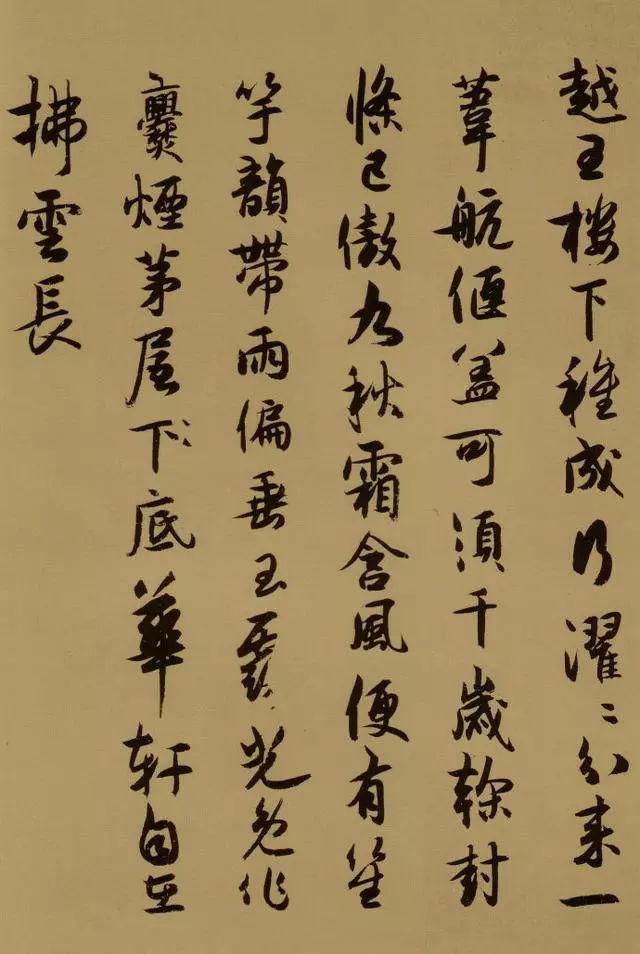 越王楼下種成行濯〻分来一
葦航偃盖可須千歲榦封
條已傲九秋霜含風便有笙
竽韻帶雨偏垂玉露光免作
爨煙茅屋下底華軒自在
拂雲長